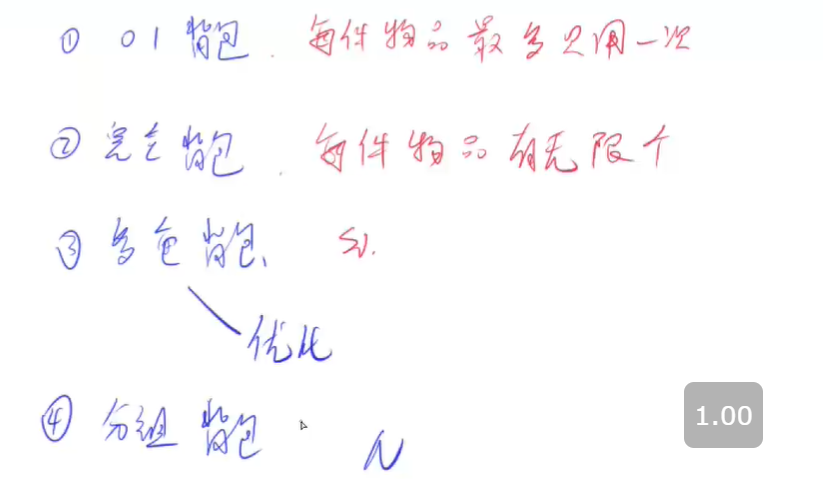 ① 01背包. 每件物品最多只用一次
② 完全背包. 每件物品有无限个
③ 多重背包、 Si.
优化
④ 分组背包 N
1.00